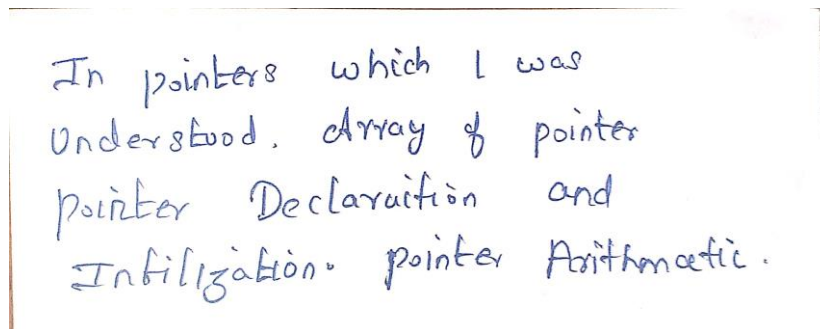 In pointers which I was
Understood. Array of pointer
pointer Declaraition and
Intilization. pointer Arithmatic.